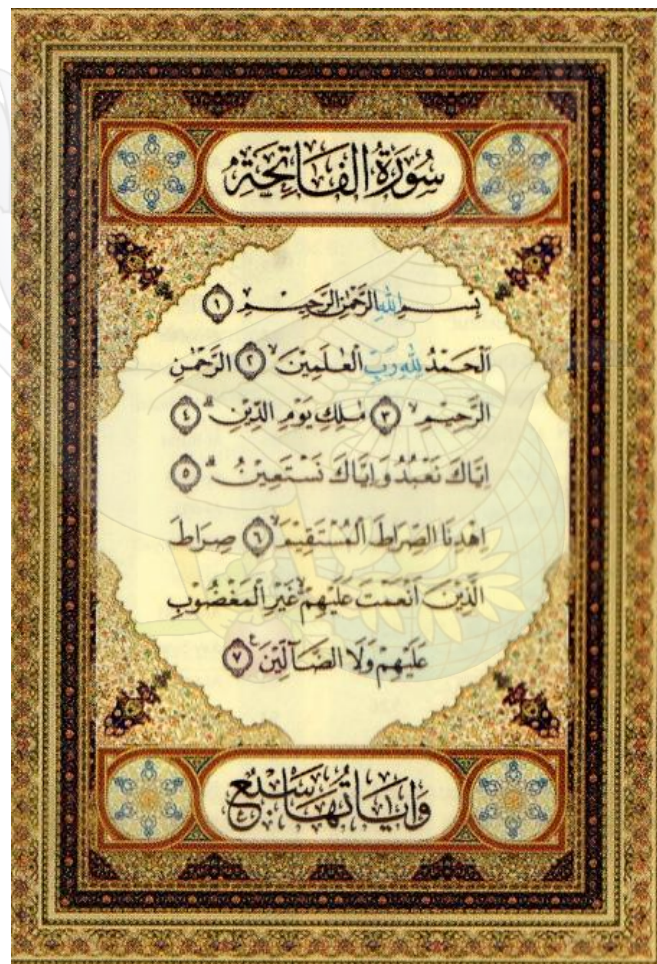 سُورَةُ الْفَاتِحَةِ
بِسْمِ اللّٰهِ الرَّحْمٰنِ الرَّحِيْمِ ۝١
اَلْحَمْدُ لِلّٰهِ رَبِّ الْعٰلَمِيْنَ ۝٢ الرَّحْمٰنِ
الرَّحِيْمِ ۝٣ مٰلِكِ يَوْمِ الدِّيْنِ ۝٤
اِيَّاكَ نَعْبُدُ وَاِيَّاكَ نَسْتَعِيْنُ ۝٥
اِهْدِنَا الصِّرَاطَ الْمُسْتَقِيْمَ ۝٦ صِرَاطَ
الَّذِيْنَ اَنْعَمْتَ عَلَيْهِمْ غَيْرِ الْمَغْضُوْبِ
عَلَيْهِمْ وَلَا الضَّآلِّيْنَ ۝٧
وَاٰيَاتُهَا سَبْعٌ